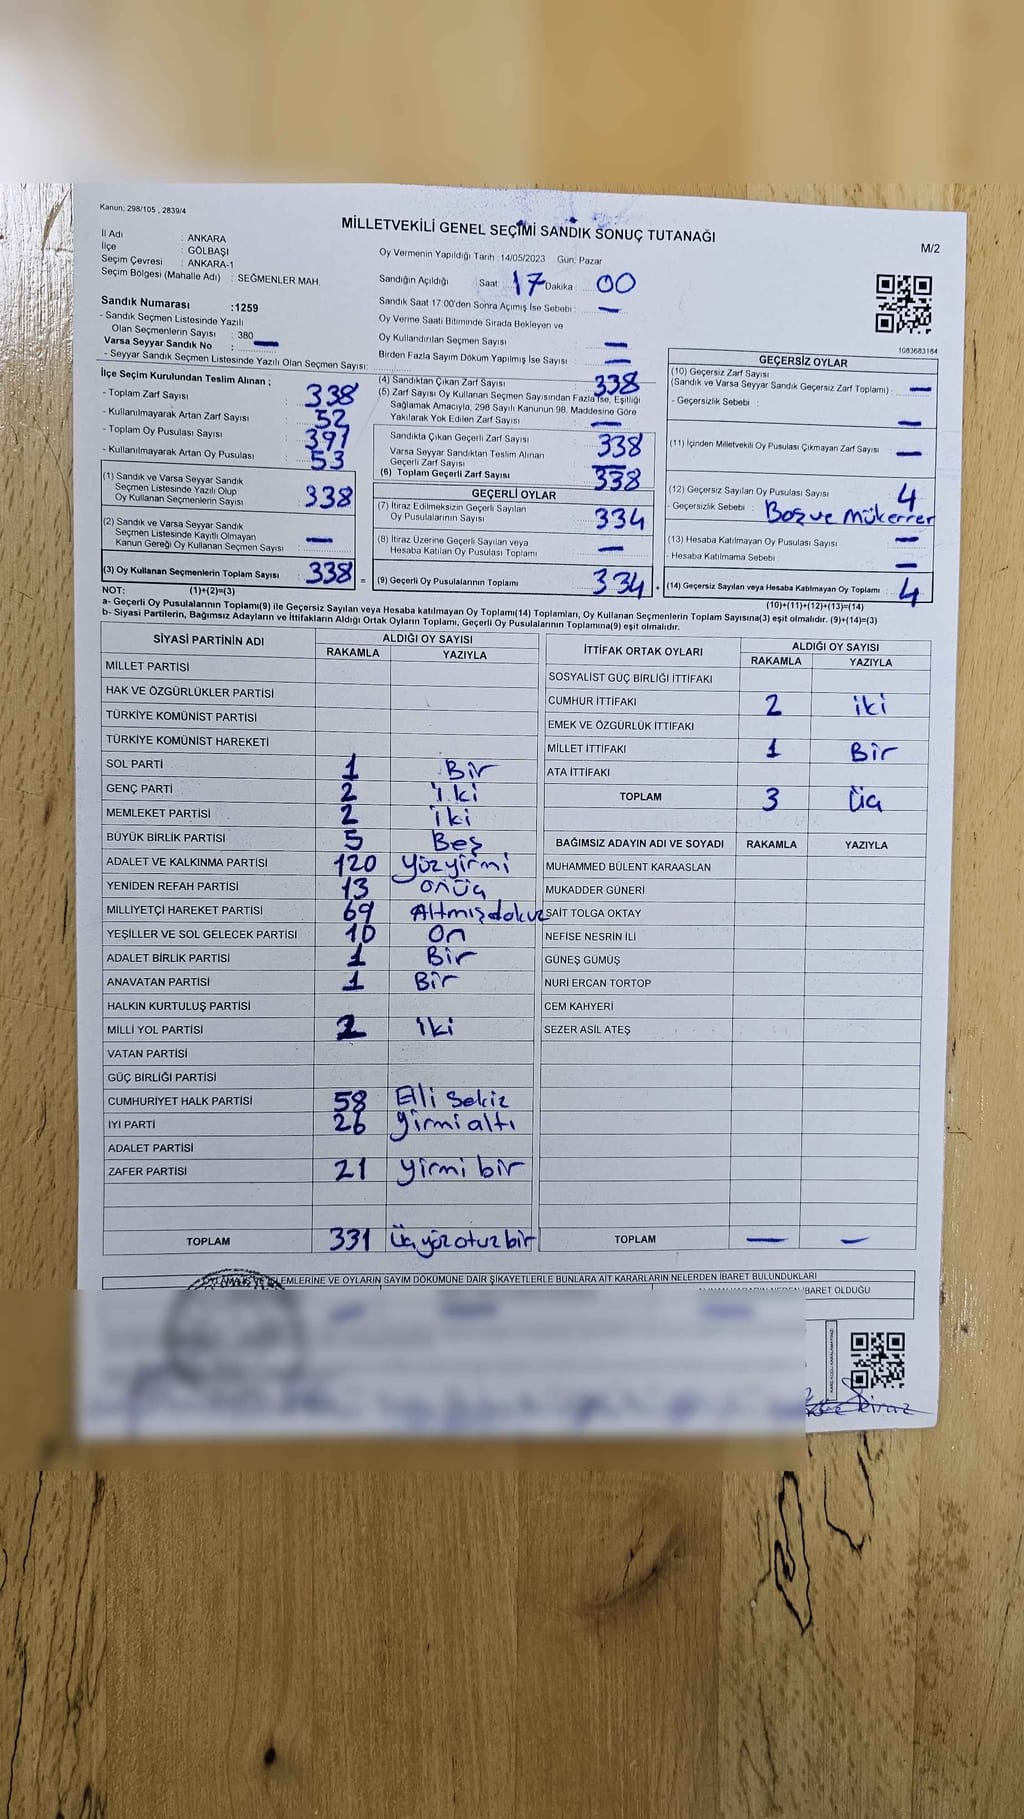 Kanun: 298/105 , 2839/4
MİLLETVEKİLİ GENEL SEÇİMİ SANDIK SONUÇ TUTANAĞI
M/2
İl Adı : ANKARA
İlçe : GÖLBAŞI
Seçim Çevresi : ANKARA-1
Seçim Bölgesi (Mahalle Adı) : SEĞMENLER MAH.
Sandık Numarası :1259
- Sandık Seçmen Listesinde Yazılı
Olan Seçmenlerin Sayısı : 380
Varsa Seyyar Sandık No : —
- Seyyar Sandık Seçmen Listesinde Yazılı Olan Seçmen Sayısı:
Oy Vermenin Yapıldığı Tarih : 14/05/2023 Gün: Pazar
Sandığın Açıldığı Saat: 17 Dakika : 00
Sandık Saat 17:00'den Sonra Açımış İse Sebebi : —
Oy Verme Saati Bitiminde Sırada Bekleyen ve
Oy Kullandırılan Seçmen Sayısı : —
Birden Fazla Sayım Döküm Yapılmış İse Sayısı : —
1083683184
İlçe Seçim Kurulundan Teslim Alınan ;
- Toplam Zarf Sayısı : 338
- Kullanılmayarak Artan Zarf Sayısı : 52
- Toplam Oy Pusulası Sayısı : 391
- Kullanılmayarak Artan Oy Pusulası : 53
(1) Sandık ve Varsa Seyyar Sandık
Seçmen Listesinde Yazılı Olup
Oy Kullanan Seçmenlerin Sayısı : 338
(2) Sandık ve Varsa Seyyar Sandık
Seçmen Listesinde Kayıtlı Olmayan
Kanun Gereği Oy Kullanan Seçmen Sayısı : —
(3) Oy Kullanan Seçmenlerin Toplam Sayısı : 338 =
(1)+(2)=(3)
(4) Sandıktan Çıkan Zarf Sayısı : 338
(5) Zarf Sayısı Oy Kullanan Seçmen Sayısından Fazla İse, Eşitliği
Sağlamak Amacıyla; 298 Sayılı Kanunun 98. Maddesine Göre
Yakılarak Yok Edilen Zarf Sayısı : —
Sandıkta Çıkan Geçerli Zarf Sayısı : 338
Varsa Seyyar Sandıktan Teslim Alınan
Geçerli Zarf Sayısı : —
(6) Toplam Geçerli Zarf Sayısı : 338
GEÇERLİ OYLAR
(7) İtiraz Edilmeksizin Geçerli Sayılan
Oy Pusulalarının Sayısı : 334
(8) İtiraz Üzerine Geçerli Sayılan veya
Hesaba Katılan Oy Pusulası Toplamı : —
(9) Geçerli Oy Pusulalarının Toplamı 334 +
GEÇERSİZ OYLAR
(10) Geçersiz Zarf Sayısı
(Sandık ve Varsa Seyyar Sandık Geçersiz Zarf Toplamı) : —
- Geçersizlik Sebebi :
—
(11) İçinden Milletvekili Oy Pusulası Çıkmayan Zarf Sayısı : —
(12) Geçersiz Sayılan Oy Pusulası Sayısı : 4
- Geçersizlik Sebebi : Boş ve Mükerrer
(13) Hesaba Katılmayan Oy Pusulası Sayısı : —
- Hesaba Katılmama Sebebi : —
(14) Geçersiz Sayılan veya Hesaba Katılmayan Oy Toplamı : 4
(10)+(11)+(12)+(13)=(14)
NOT:
a- Geçerli Oy Pusulalarının Toplamı(9) ile Geçersiz Sayılan veya Hesaba katılmayan Oy Toplamı(14) Toplamları, Oy Kullanan Seçmenlerin Toplam Sayısına(3) eşit olmalıdır. (9)+(14)=(3)
b- Siyasi Partilerin, Bağımsız Adayların ve İttifakların Aldığı Ortak Oyların Toplamı, Geçerli Oy Pusulalarının Toplamına(9) eşit olmalıdır.
SİYASİ PARTİNİN ADI ALDIĞI OY SAYISI
RAKAMLA YAZIYLA
MİLLET PARTİSİ
HAK VE ÖZGÜRLÜKLER PARTİSİ
TÜRKİYE KOMÜNİST PARTİSİ
TÜRKİYE KOMÜNİST HAREKETİ
SOL PARTİ 1 Bir
GENÇ PARTİ 2 iki
MEMLEKET PARTİSİ 2 iki
BÜYÜK BİRLİK PARTİSİ 5 Beş
ADALET VE KALKINMA PARTİSİ 120 yüzyirmi
YENİDEN REFAH PARTİSİ 13 onüç
MİLLİYETÇİ HAREKET PARTİSİ 69 Altmışdokuz
YEŞİLLER VE SOL GELECEK PARTİSİ 10 on
ADALET BİRLİK PARTİSİ 1 Bir
ANAVATAN PARTİSİ 1 Bir
HALKIN KURTULUŞ PARTİSİ
MİLLİ YOL PARTİSİ 2 iki
VATAN PARTİSİ
GÜÇ BİRLİĞİ PARTİSİ
CUMHURİYET HALK PARTİSİ 58 Elli sekiz
İYİ PARTİ 26 yirmi altı
ADALET PARTİSİ
ZAFER PARTİSİ 21 yirmi bir
TOPLAM 331 üçyüzotuzbir
İTTİFAK ORTAK OYLARI ALDIĞI OY SAYISI
RAKAMLA YAZIYLA
SOSYALİST GÜÇ BİRLİĞİ İTTİFAKI
CUMHUR İTTİFAKI 2 iki
EMEK VE ÖZGÜRLÜK İTTİFAKI
MİLLET İTTİFAKI 1 Bir
ATA İTTİFAKI
TOPLAM 3 üç
BAĞIMSIZ ADAYIN ADI VE SOYADI RAKAMLA YAZIYLA
MUHAMMED BÜLENT KARAASLAN
MUKADDER GÜNERİ
SAİT TOLGA OKTAY
NEFİSE NESRİN İLİ
GÜNEŞ GÜMÜŞ
NURİ ERCAN TORTOP
CEM KAHYERİ
SEZER ASİL ATEŞ
TOPLAM — —
İŞLEMLERİNE VE OYLARIN SAYIM DÖKÜMÜNE DAİR ŞİKAYETLERLE BUNLARA AİT KARARLARIN NELERDEN İBARET BULUNDUKLARI
İBARET OLDUĞU